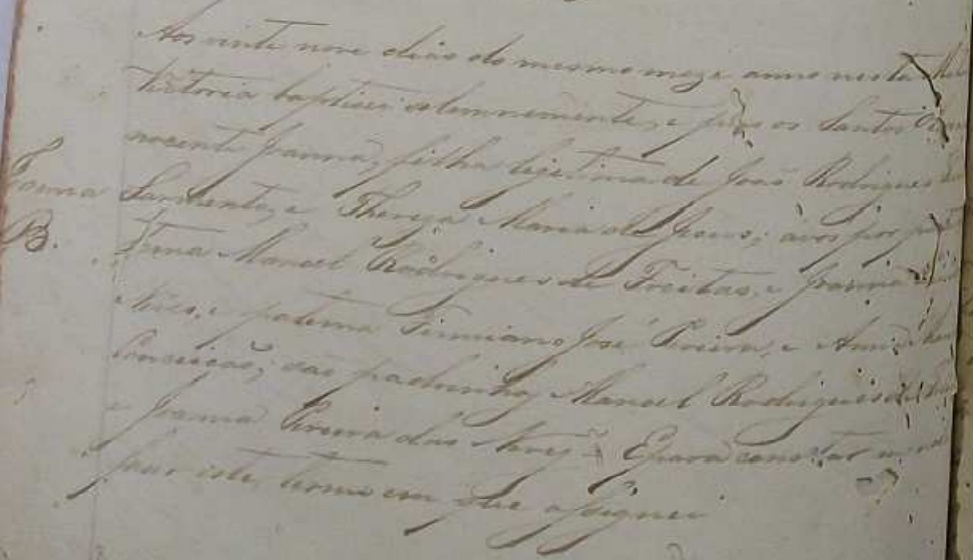 Aos vinte nove dias do mesmo mez e anno nesta
baptisei solemnemente, e pus os Santos
nocente Joanna, filha legitima de João Rodrigues
Joanna
Sarmento, e Thereza Maria de Jesus; avos por
B.
terna Manoel Rodrigues de Freitas, e Joanna
e paterna José Pereira, e
Conceição; são padrinhos Manoel Rodrigues de
e Joanna Pereira das Neves E para constar
faser este termo em que assignei